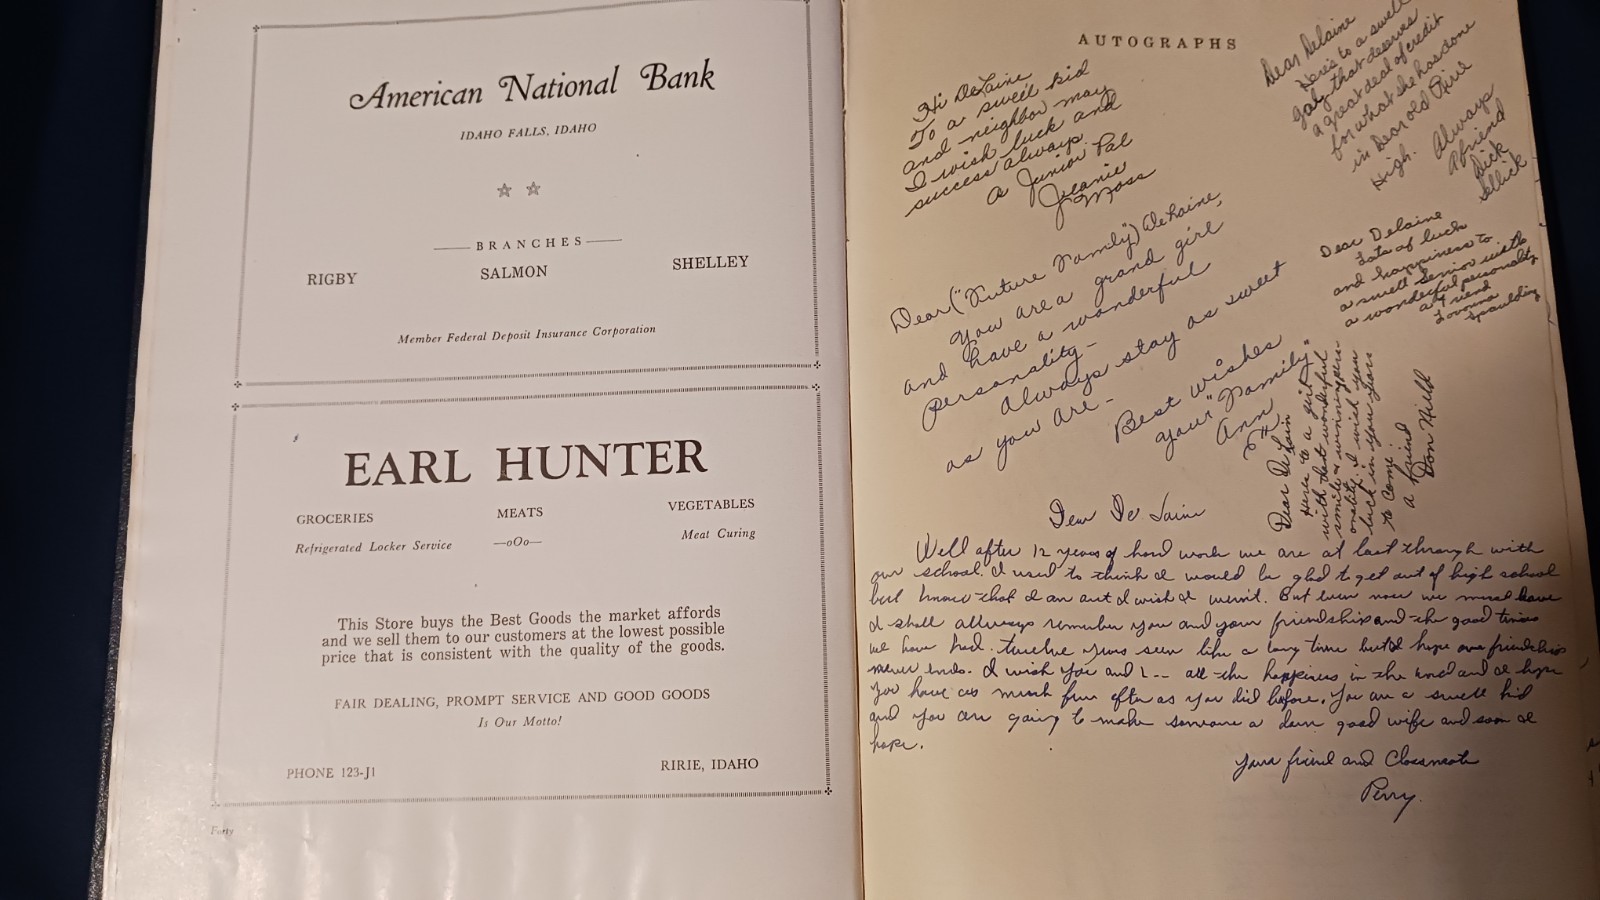 American National Bank
IDAHO FALLS, IDAHO
BRANCHES
RIGBY SALMON SHELLEY
Member Federal Deposit Insurance Corporation
EARL HUNTER
GROCERIES MEATS VEGETABLES
Refrigerated Locker Service —oOo— Meat Curing
This Store buys the Best Goods the market affords
and we sell them to our customers at the lowest possible
price that is consistent with the quality of the goods.
FAIR DEALING, PROMPT SERVICE AND GOOD GOODS
Is Our Motto!
PHONE 123-J1 RIRIE, IDAHO
Forty
AUTOGRAPHS
Hi DeLaine
To a swell kid
and neighbor may
I wish luck and
success always.
a Junior Pal
Jeanie
Moss
Dear Delaine
Here's to a swell
gal, that deserves
a great deal of credit
for what she has done
in Dear old Ririe
High.
Always
A friend
Dick
Sellick
Dear ("Future Family") DeLaine,
You are a grand girl
and have a wonderful
personality-
Always stay as sweet
as you are-
Best wishes
your "Family"
Ann
Dear Delaine
Lots of luck
and happiness to
a swell Senior with
a wonderful personality
a friend
Lovonna
Spaulding
Dear De Lain
Heres to a girl
with that wonderful
smile & winning pers-
onality. I wish you
luck in your years
to come.
a friend
Don Hill
Dear De Laine
Well after 12 years of hard work we are at last through with
our school. I used to think I would be glad to get out of high school
but know that I am out I wish I wasn't. But even now we must leave
I shall allways remember you and your friendship and the good times
we have had. twelve years seem like a long time but I hope our friendship
never ends. I wish you and L-- all the happiness in the world and I hope
you have as much fun after as you did before. You are a swell kid
and you are going to make someone a darn good wife and soon I
hope.
Your friend and Classmate
Perry.